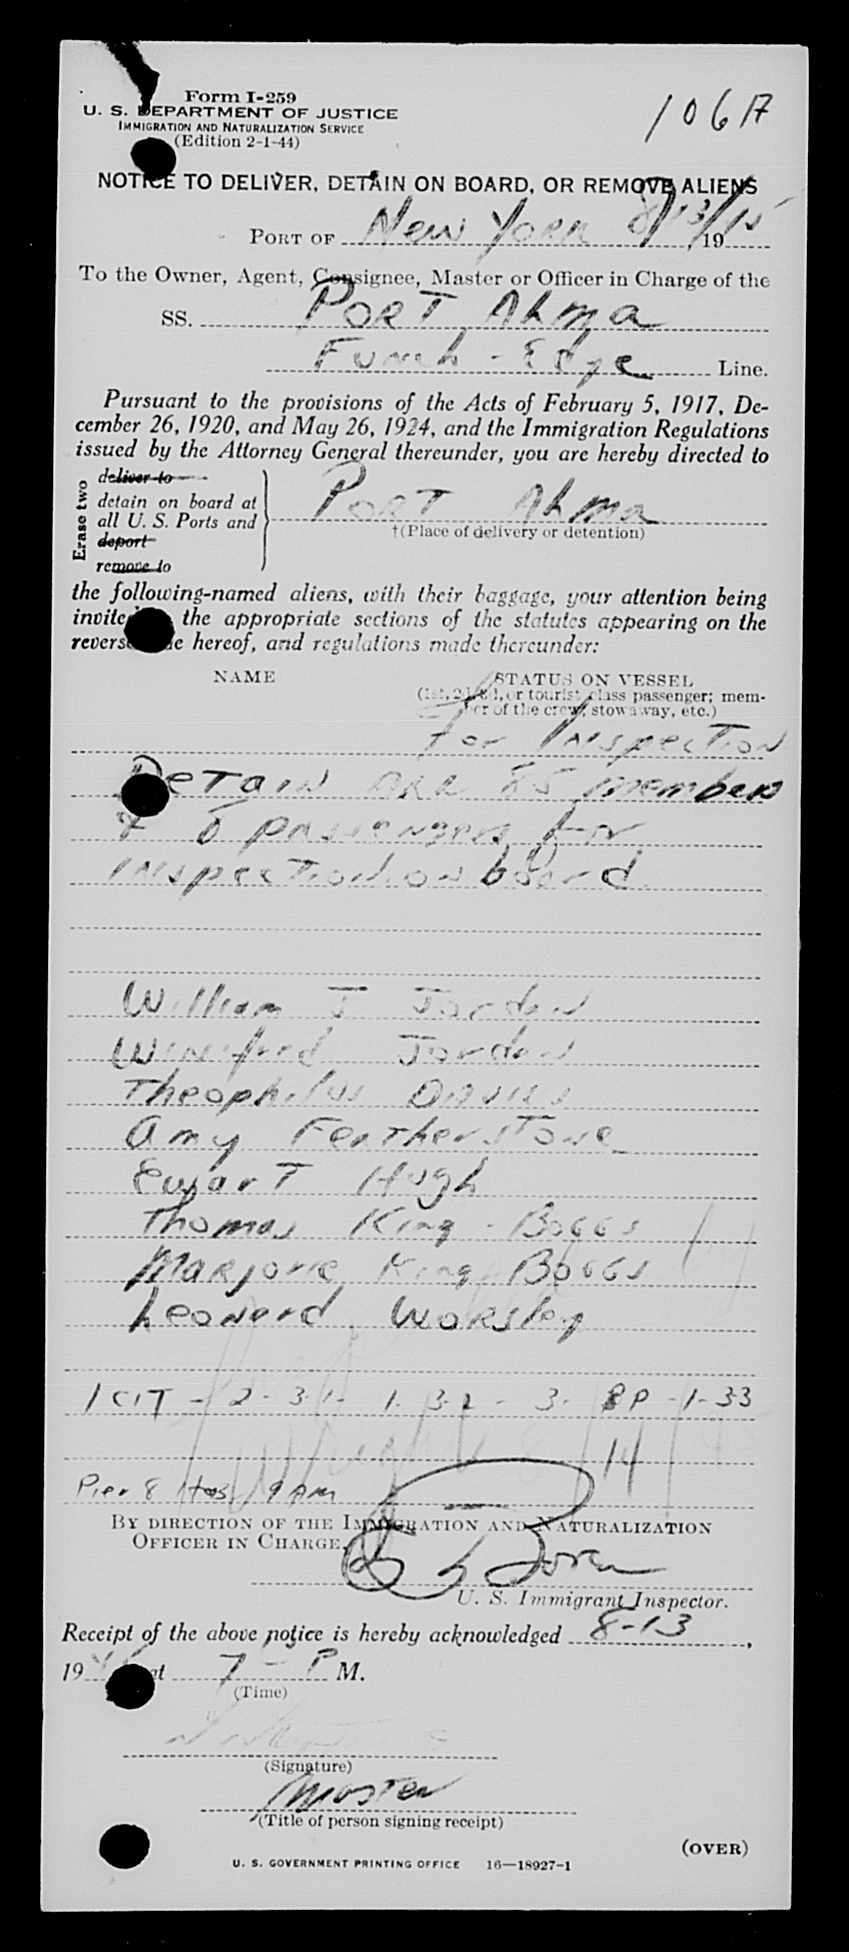 Form I-259
106A
U. S. DEPARTMENT OF JUSTICE
IMMIGRATION AND NATURALIZATION SERVICE
(Edition 2-1-44)
NOTICE TO DELIVER, DETAIN ON BOARD, OR REMOVE ALIENS
PORT OF New York 8/13/45, 19
To the Owner, Agent, Consignee, Master or Officer in Charge of the
SS. PORT Alma
Funch-Edye Line.
Pursuant to the provisions of the Acts of February 5, 1917, De-
cember 26, 1920, and May 26, 1924, and the Immigration Regulations
issued by the Attorney General thereunder, you are hereby directed to
Erase two
deliver to
detain on board at
all U. S. Ports and
deport
remove to
PORT Alma
†(Place of delivery or detention)
the following-named aliens, with their baggage, your attention being
invited the appropriate sections of the statutes appearing on the
reverse hereof, and regulations made thereunder:
NAME
STATUS ON VESSEL
(1st, 2d, 3d, or tourist class passenger; mem-
ber of the crew, stowaway, etc.)
For Inspection
Detain all 85 members
& 8 passengers for
Inspection on board
William J Jordan
Winifred Jordan
Theophilus Davies
Amy Featherstone
Ewart Hugh
Thomas King-Boggs
Marjorie King Boggs
Leonard Worsley
1 CIT - 2-31- 1.32 - 3. 8P -1-33
8/14/45
Pier 8 9 AM
BY DIRECTION OF THE IMMIGRATION AND NATURALIZATION
OFFICER IN CHARGE.
U. S. Immigrant Inspector.
Receipt of the above notice is hereby acknowledged 8-13,
1945 at 7 - P M.
(Time)
(Signature)
Master
(Title of person signing receipt)
(OVER)
U. S. GOVERNMENT PRINTING OFFICE 16—18927-1